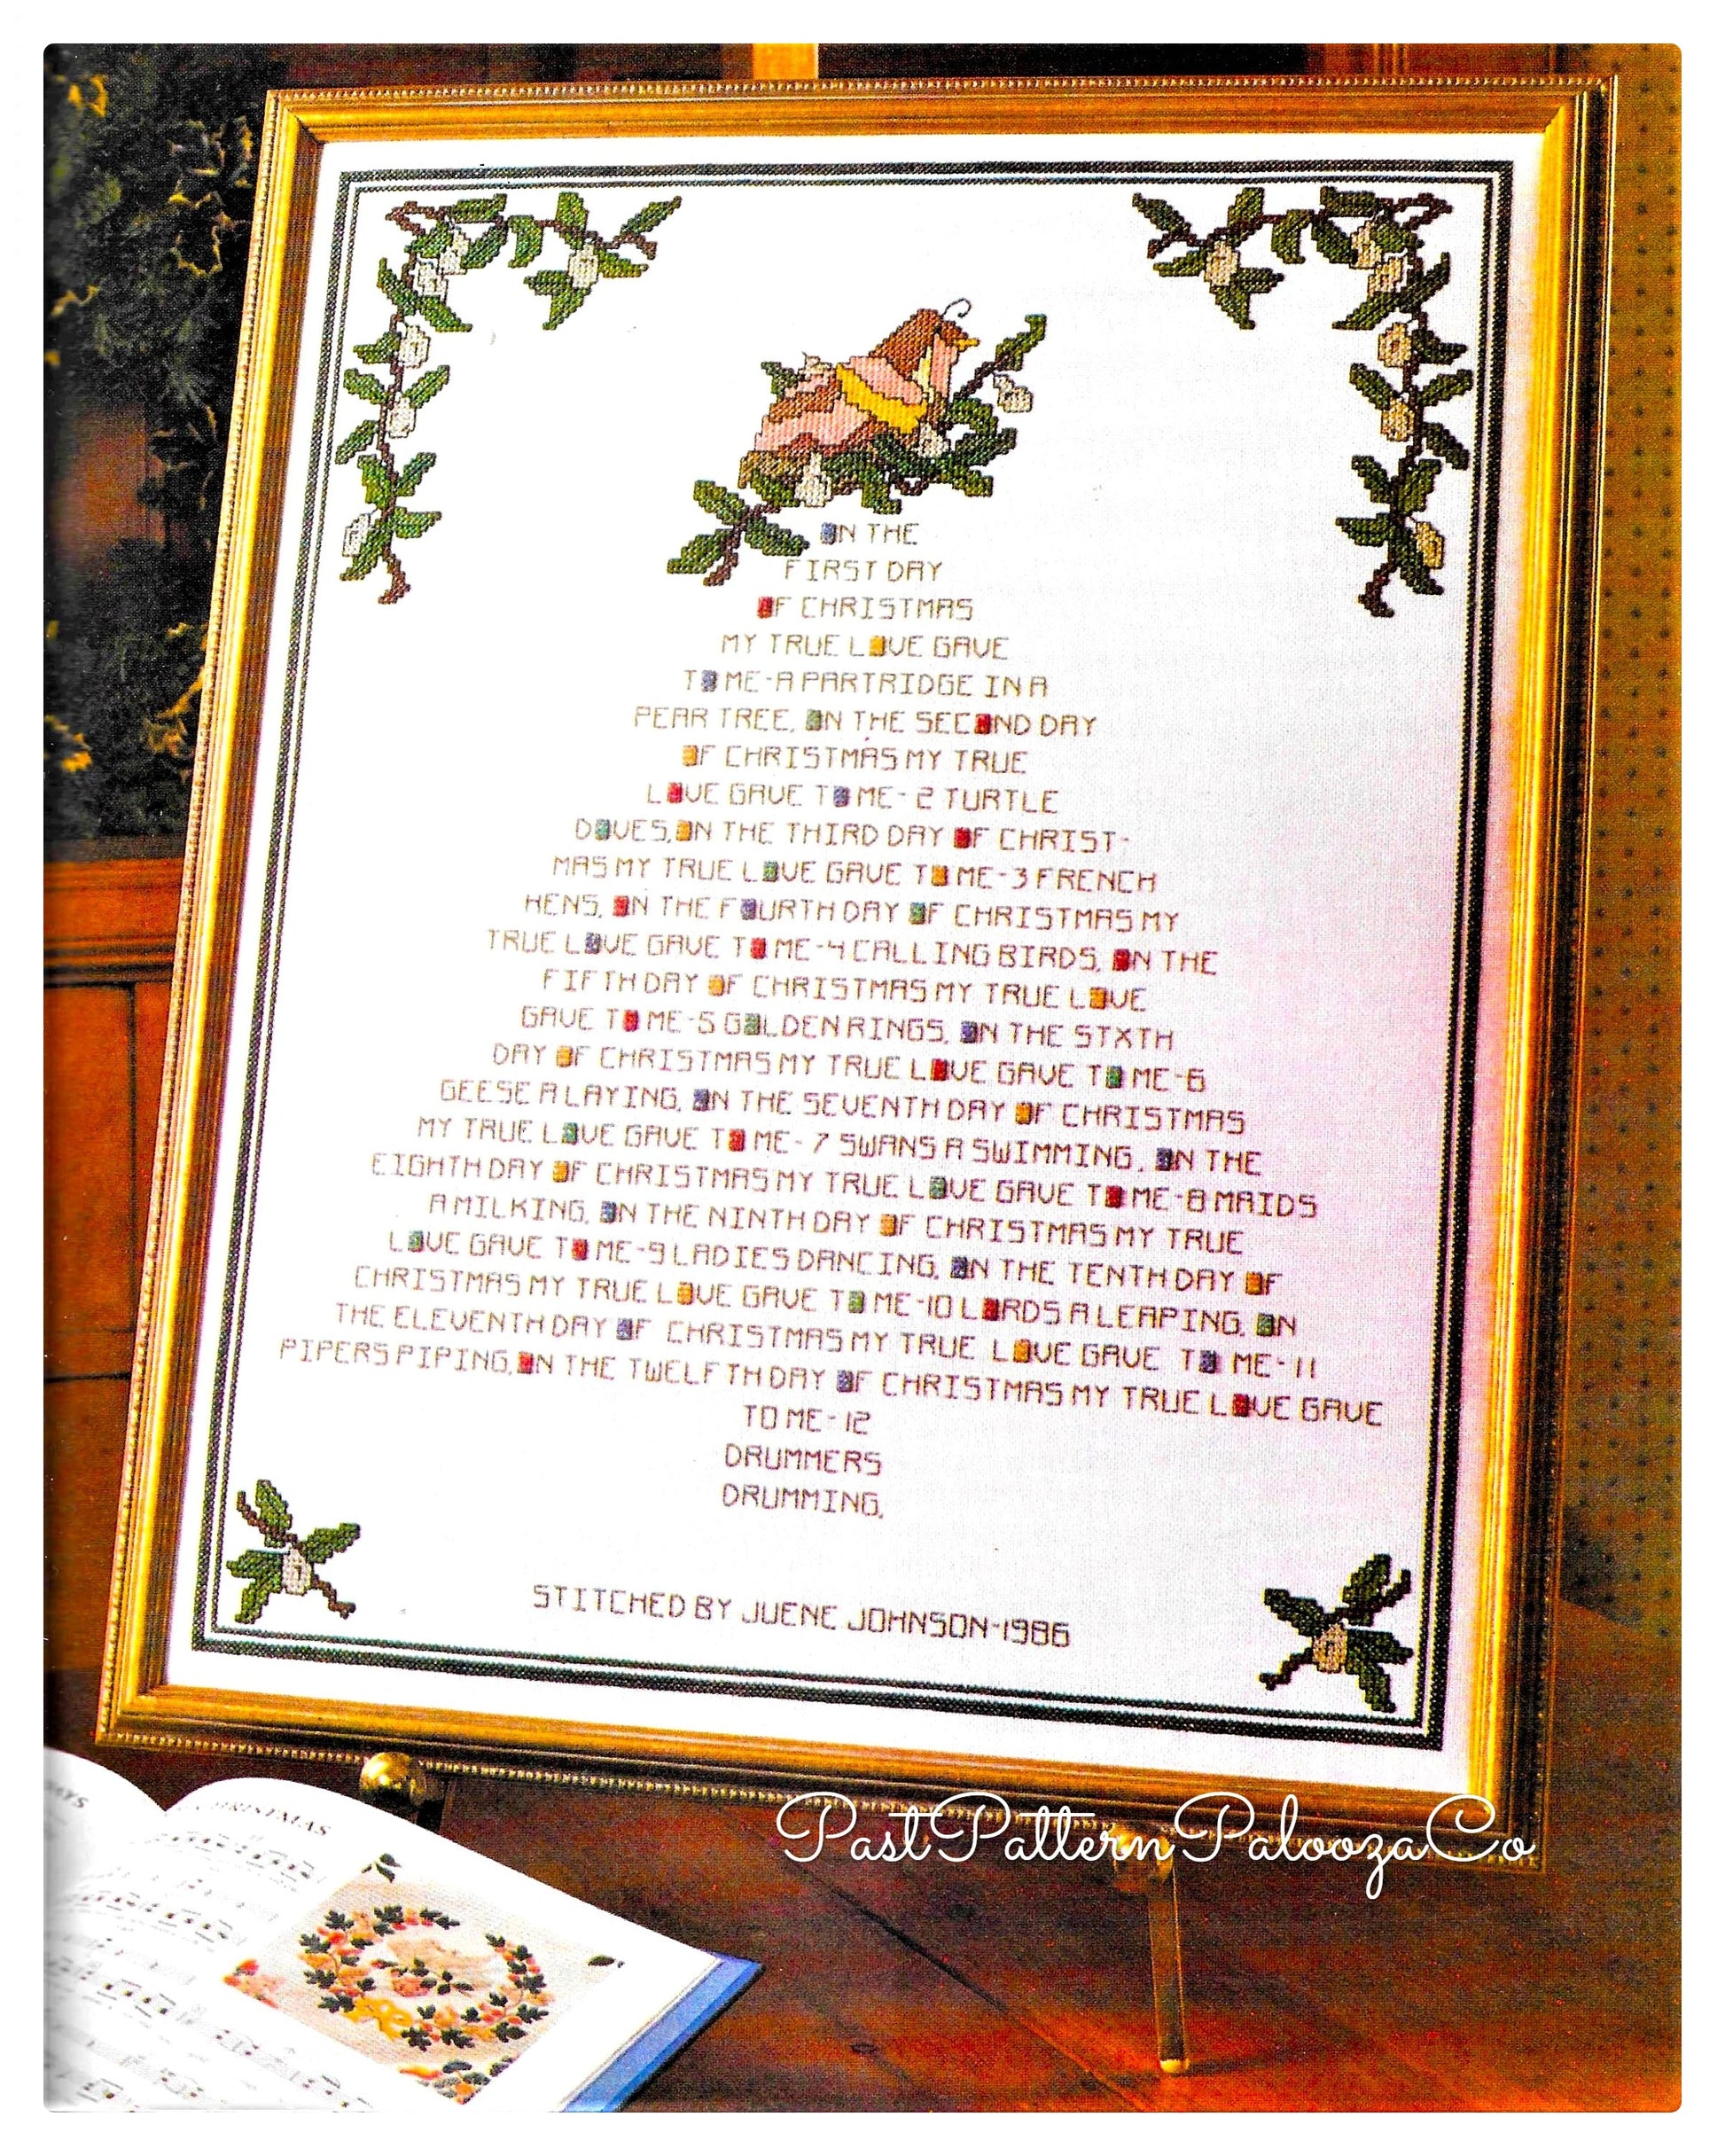 ON THE
FIRST DAY
OF CHRISTMAS
MY TRUE LOVE GAVE
TO ME-A PARTRIDGE IN A
PEAR TREE, ON THE SECOND DAY
OF CHRISTMAS MY TRUE
LOVE GAVE TO ME- 2 TURTLE
DOVES, ON THE THIRD DAY OF CHRIST-
MAS MY TRUE LOVE GAVE TO ME-3 FRENCH
HENS, ON THE FOURTH DAY OF CHRISTMAS MY
TRUE LOVE GAVE TO ME-4 CALLING BIRDS, ON THE
FIFTH DAY OF CHRISTMAS MY TRUE LOVE
GAVE TO ME-5 GOLDEN RINGS, ON THE STXTH
DAY OF CHRISTMAS MY TRUE LOVE GAVE TO ME-6
GEESE A LAYING, ON THE SEVENTH DAY OF CHRISTMAS
MY TRUE LOVE GAVE TO ME- 7 SWANS A SWIMMING, ON THE
EIGHTH DAY OF CHRISTMAS MY TRUE LOVE GAVE TO ME-8 MAIDS
A MILKING, ON THE NINTH DAY OF CHRISTMAS MY TRUE
LOVE GAVE TO ME-9 LADIES DANCING, ON THE TENTH DAY OF
CHRISTMAS MY TRUE LOVE GAVE TO ME-10 LORDS A LEAPING, ON
THE ELEVENTH DAY OF CHRISTMAS MY TRUE LOVE GAVE TO ME-11
PIPERS PIPING, ON THE TWELFTH DAY OF CHRISTMAS MY TRUE LOVE GAVE
TO ME-12
DRUMMERS
DRUMMING,
STITCHED BY JUENE JOHNSON-1986
PastPatternPaloozaCo
CHRISTMAS